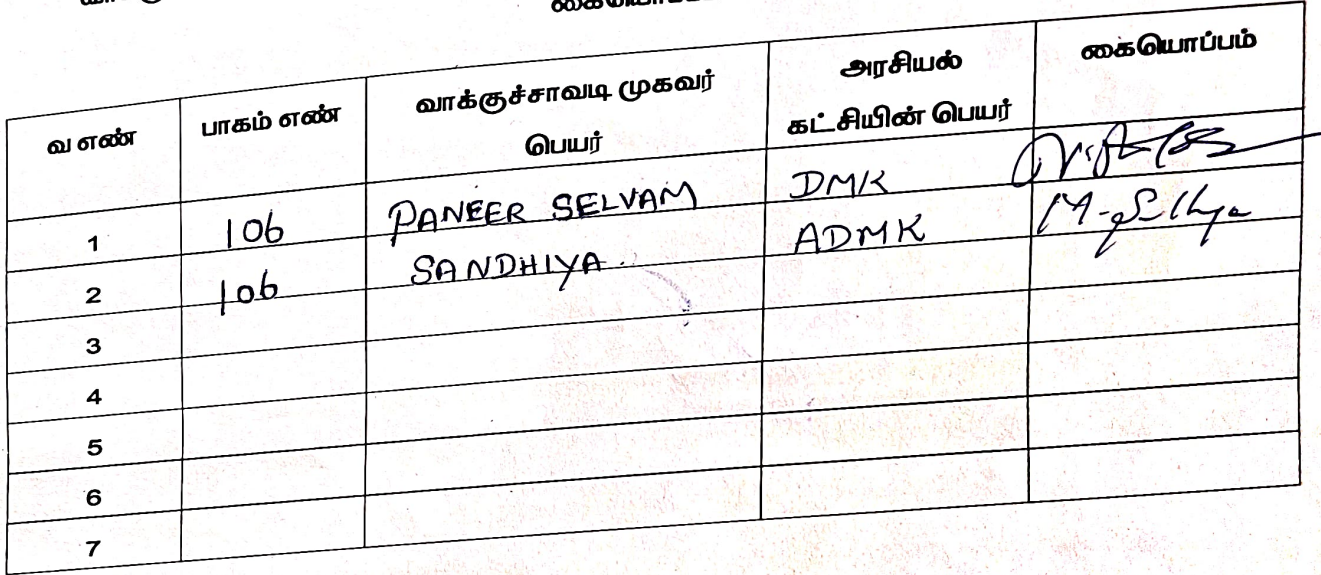 வ எண் பாகம் எண் வாக்குச்சாவடி முகவர் பெயர் அரசியல் கட்சியின் பெயர் கையொப்பம்
1 106 PANEER SELVAM DMK
2 106 SANDHIYA ADMK
3
4
5
6
7